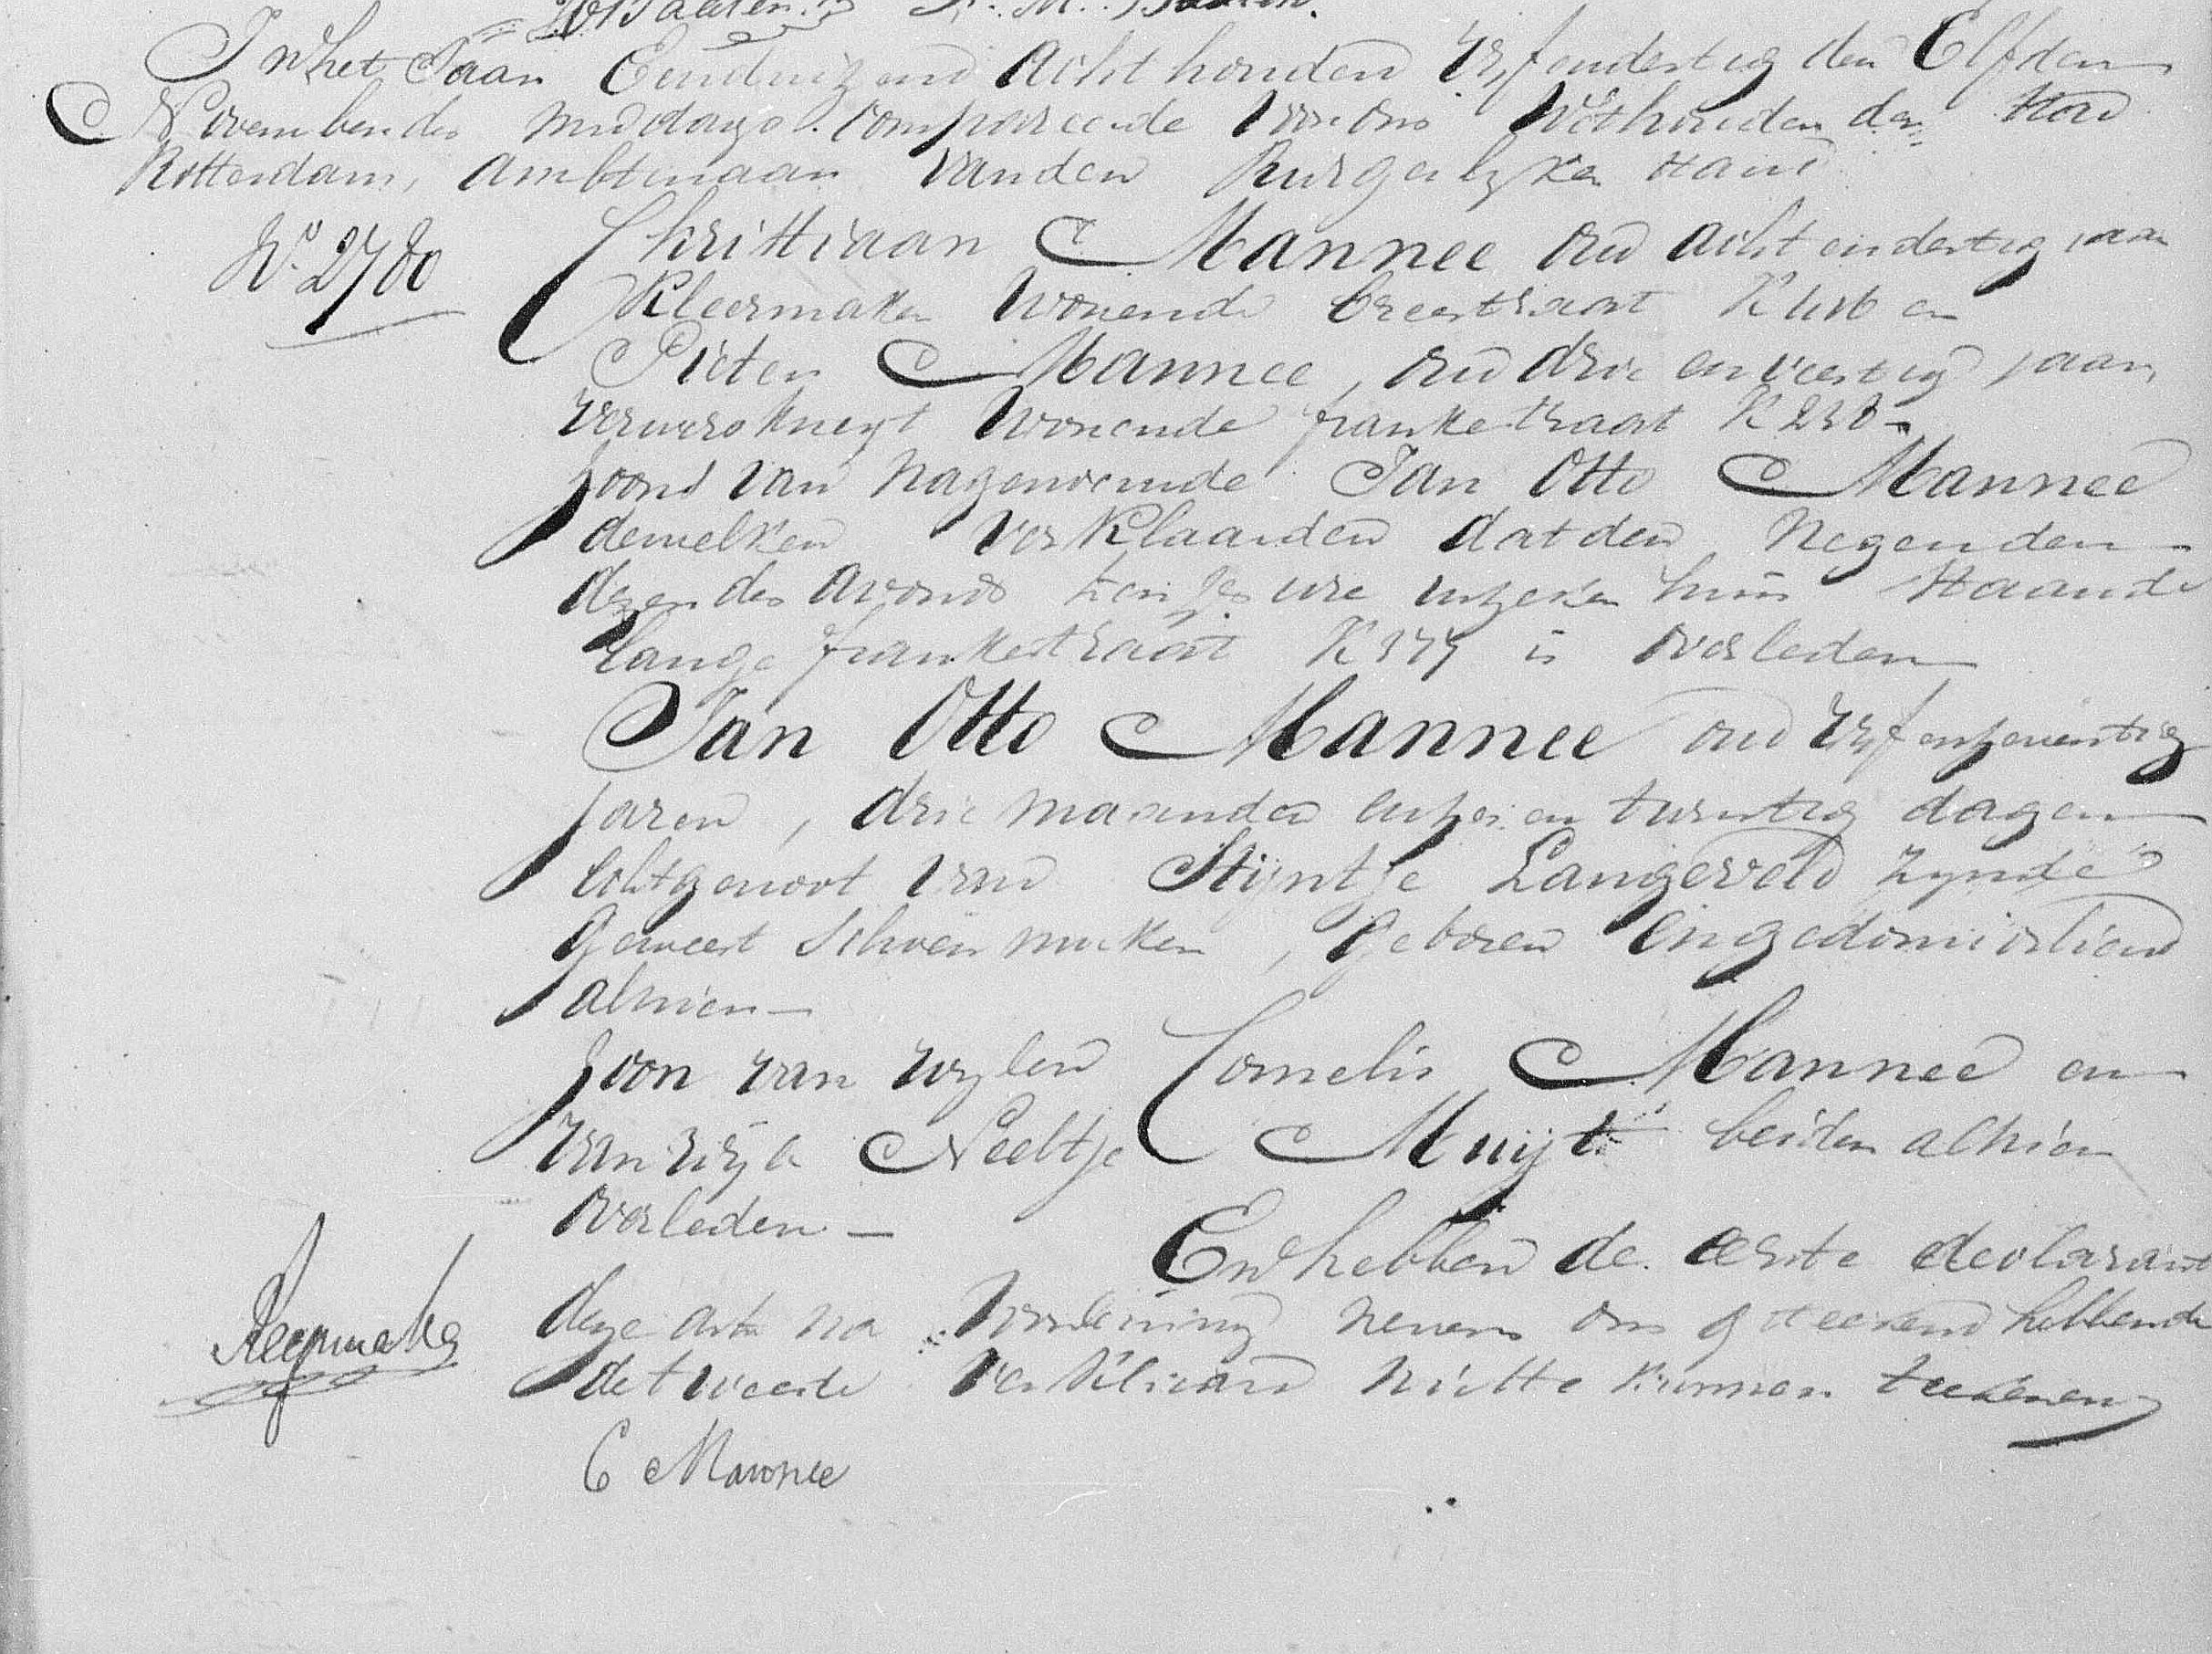 In het Jaar Eenduizend Achthonderd Vijfendertig den Elfden
November des middags compareerde voor ons Wethouder der Stad
Rotterdam, Ambtenaar van den Burgerlyken stand
No. 2780
Christiaan Mannee oud acht en dertig jaar
Kleermaker Wonende breestraat K en
Pieter Mannee, oud drie en veertig jaar,
Verversknegt Wonende frankestraat K 238
Zoons van nagenoemde Jan Otto Mannee
dewelken verklaarden dat den Negenden
dezer des avonds ten zes ure in zeker huis staande
lange frankestraat K 377 is overleden
Jan Otto Mannee oud vyf en zeventig
jaren, drie maanden en zes en twintig dagen
echtgenoot van Stijntje Langeveld zynde
geweest schoenmaker, geboren en gedomicilieerd
alhier
Zoon van wylen Cornelis Mannee en
van wyle Neeltje Muijt beiden alhier
overleden
En hebben de eerste declarant
deze acte na voorlezing nevens ons geteekend hebbende
de tweede verklaard niet te kunnen teekenen
C Mannee